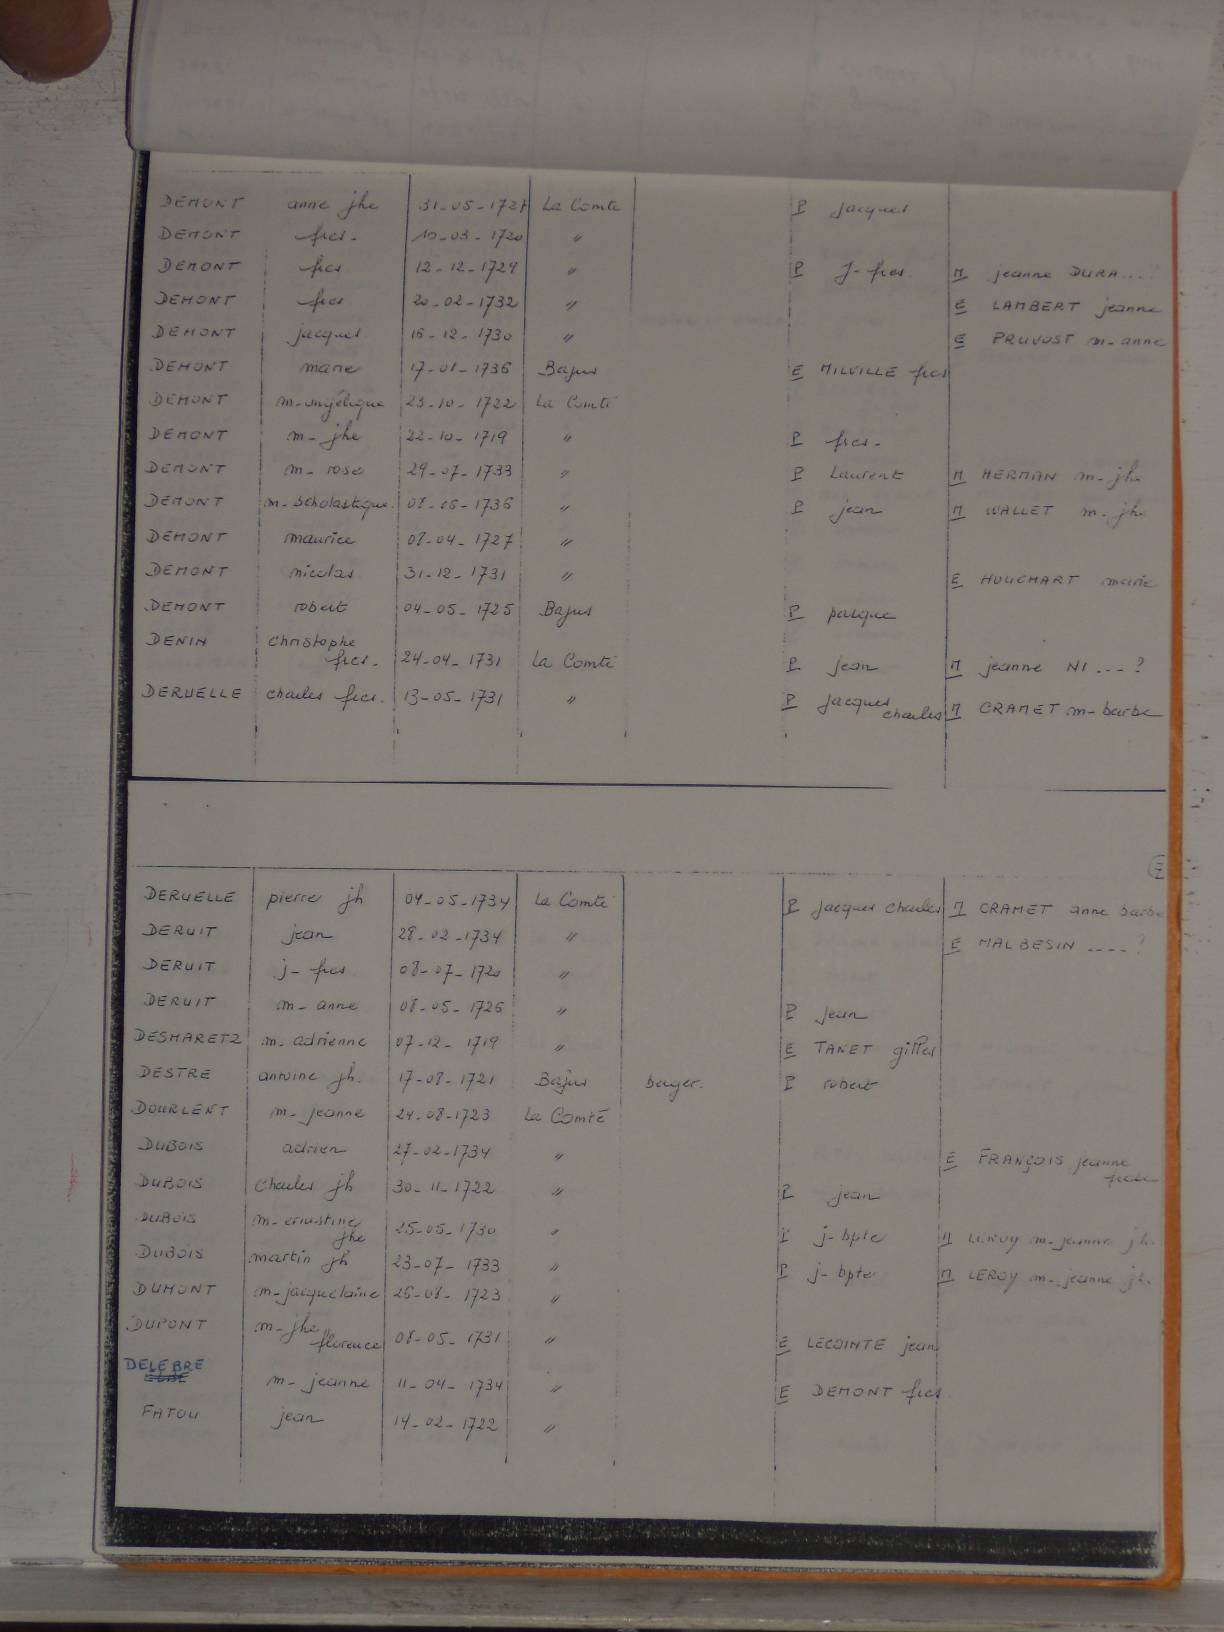 DEMONT anne jhe 31-05-1727 La Comté P jacques
DEMONT fres- 10-03-1720 "
DEMONT fres 12-12-1724 " P J-fres. M jeanne DURA...?
DEMONT fres 20-02-1732 " E LAMBERT jeanne
DEMONT jacques 16-12-1730 " E PRUVOST m-anne
DEMONT marie 17-01-1736 Bajus E MILVILLE fres
DEMONT m-angélique 23-10-1722 La Comté
DEMONT m-jhe 22-10-1719 " P fres-
DEMONT m-rose 29-07-1733 " P Laurent M HERMAN m-jhe
DEMONT m-scholastique 08-06-1736 " P jean M WALLET m-jhe
DEMONT maurice 08-04-1727 "
DEMONT nicolas 31-12-1731 " E HOUCHART marie
DEMONT robert 04-05-1725 Bajus P pasque
DENIN christophe
fres- 24-04-1731 La Comté P jean M jeanne NI...?
DERUELLE charles fres. 13-05-1731 " P jacques
charles M CRAMET m-barbe
7
DERUELLE pierre jh 04-05-1734 La Comté P jacques charles M CRAMET anne barbe
DERUIT jean 28-02-1734 " E MALBESIN ....?
DERUIT j-fres "
DERUIT m-anne 08-05-1726 " P jean
DESMARETZ m-adrienne 07-12-1719 " E TANET gilles
DESTRE antoine jh. 17-08-1721 Bajus berger. P robert
DOURLENT m-jeanne 24-08-1723 La Comté
DUBOIS adrien 27-02-1734 " E FRANÇOIS jeanne
DUBOIS charles jh 30-11-1722 " P jean
DUBOIS m-ernestine
jhe 25-05-1730 " P j-bpte M LEROY m-jeanne jh.
DUBOIS martin jh 23-07-1733 " P j-bpte M LEROY m-jeanne jh.
DUMONT m-jacquelaine 26-08-1723 "
DUPONT m-jhe
florence 08-05-1731 " E LECOINTE jean
DELEBRE
m-jeanne 11-04-1734 " E DEMONT fres
FATOU jean 14-02-1722 "